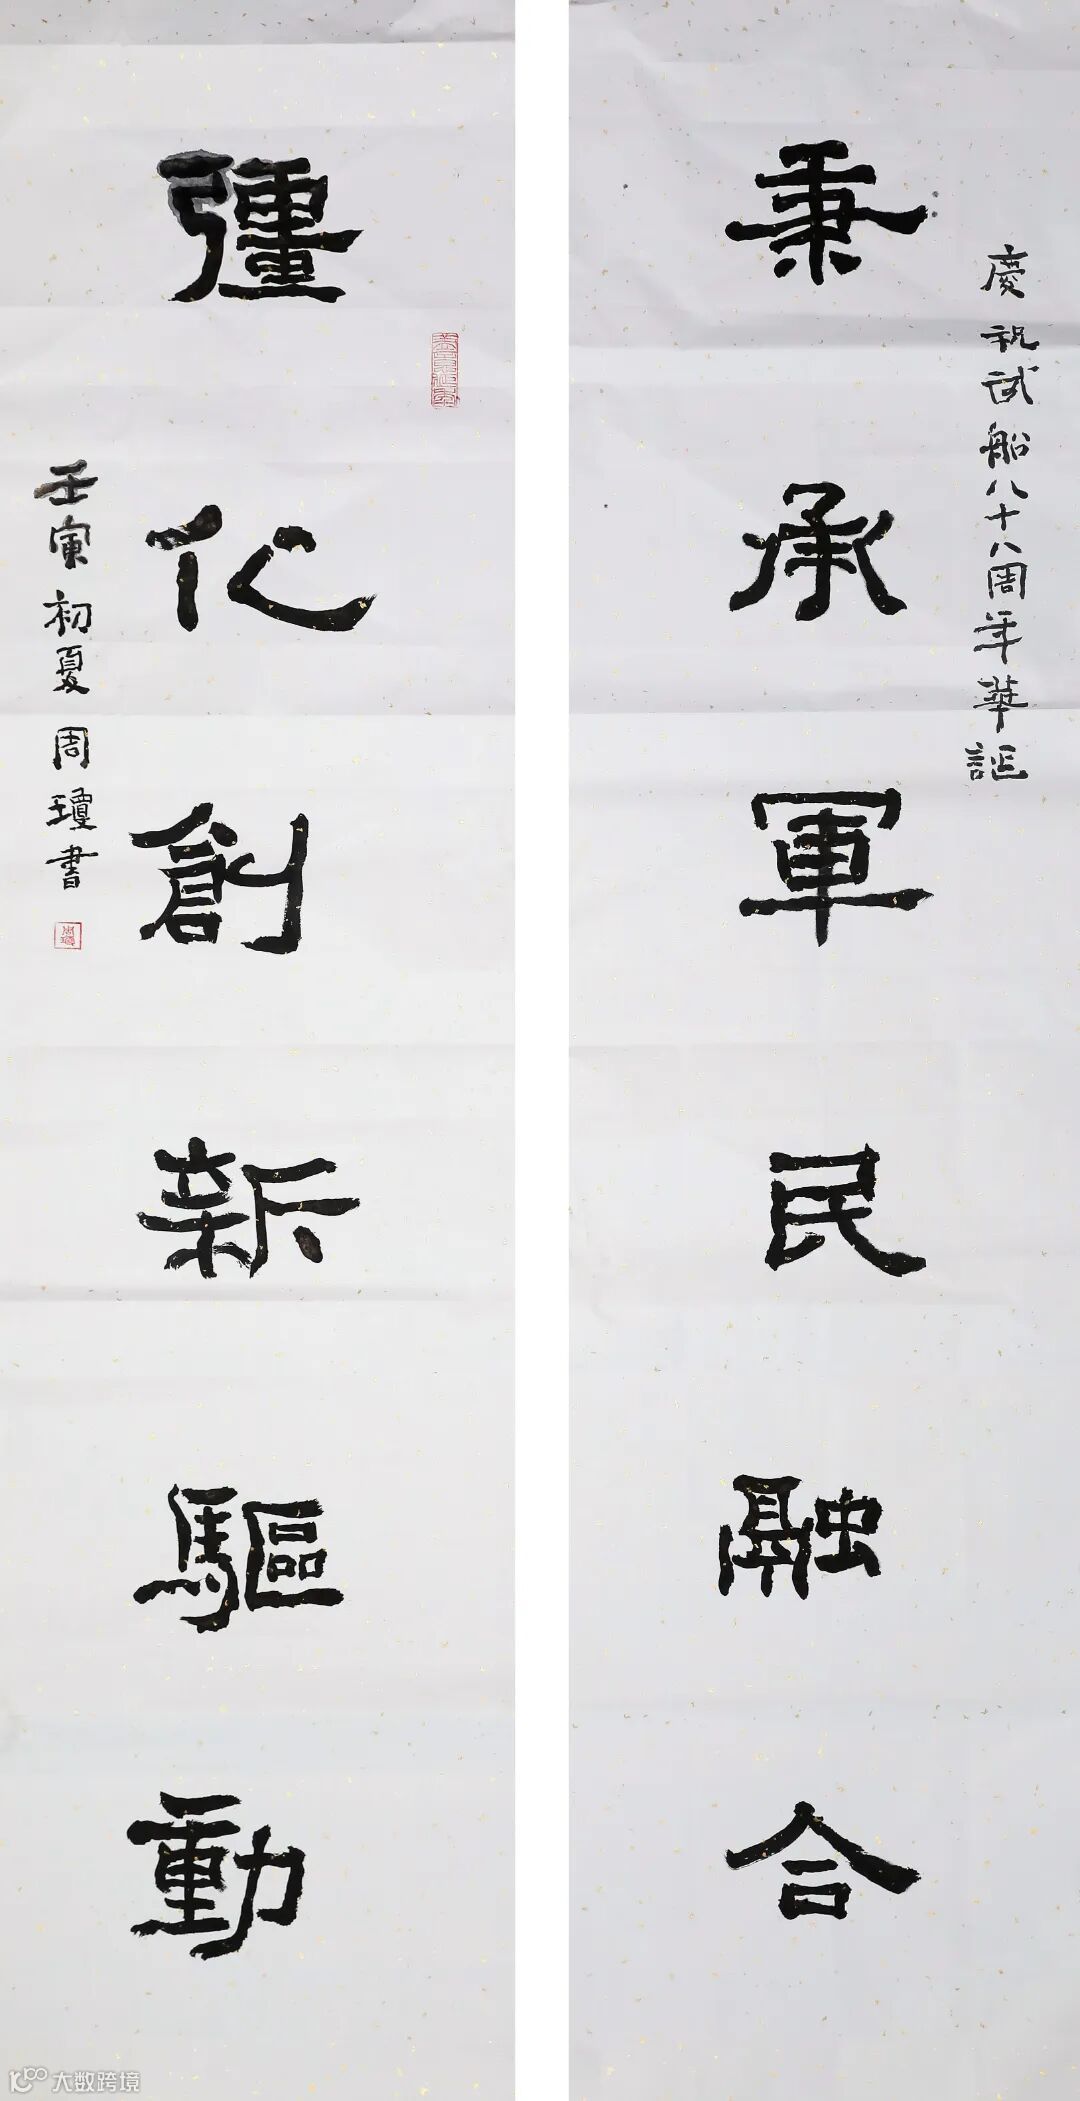 慶祝試船八十八周年華誕
秉承軍民融合
彊化創新驅動
壬寅初夏周瓊書
大数跨境